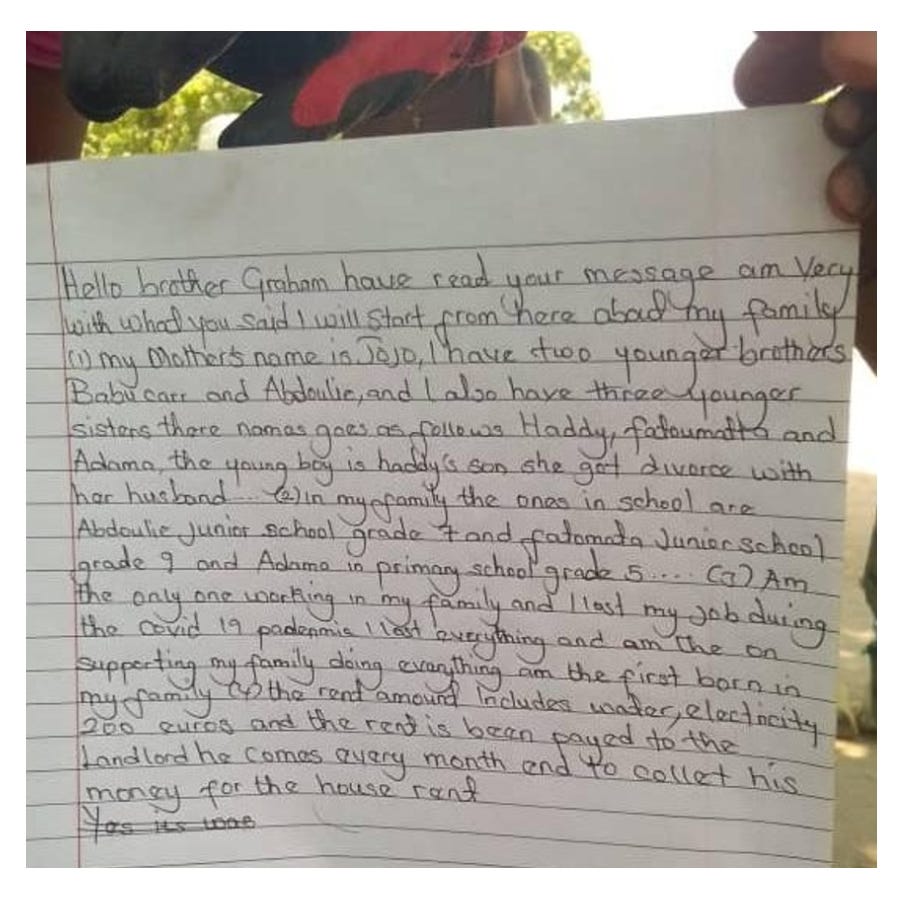 Hello brother Graham have read your message am Very
with whad you said I will start from here abad my family
(1) my Mother's name is Jojo, I have two younger brothers
Babucarr and Abdoulie, and I also have three younger
sisters there names goes as follows Haddy, fatoumatta and
Adama, the young boy is haddy's son she got divorce with
her husband.... (2) in my family the ones in school are
Abdoulie Junior school grade 7 and fatomata Junior school
grade 9 and Adama in primary school grade 5.... (3) Am
the only one working in my family and I lost my job during
the covid 19 padenmic I lost everything and am the on
supporting my family doing evarything am the first born in
my family (4) the rent amound includes water, electricity
200 euros and the rent is been payed to the
Landlord he comes every month end to collet his
money for the house rent
Yes its was